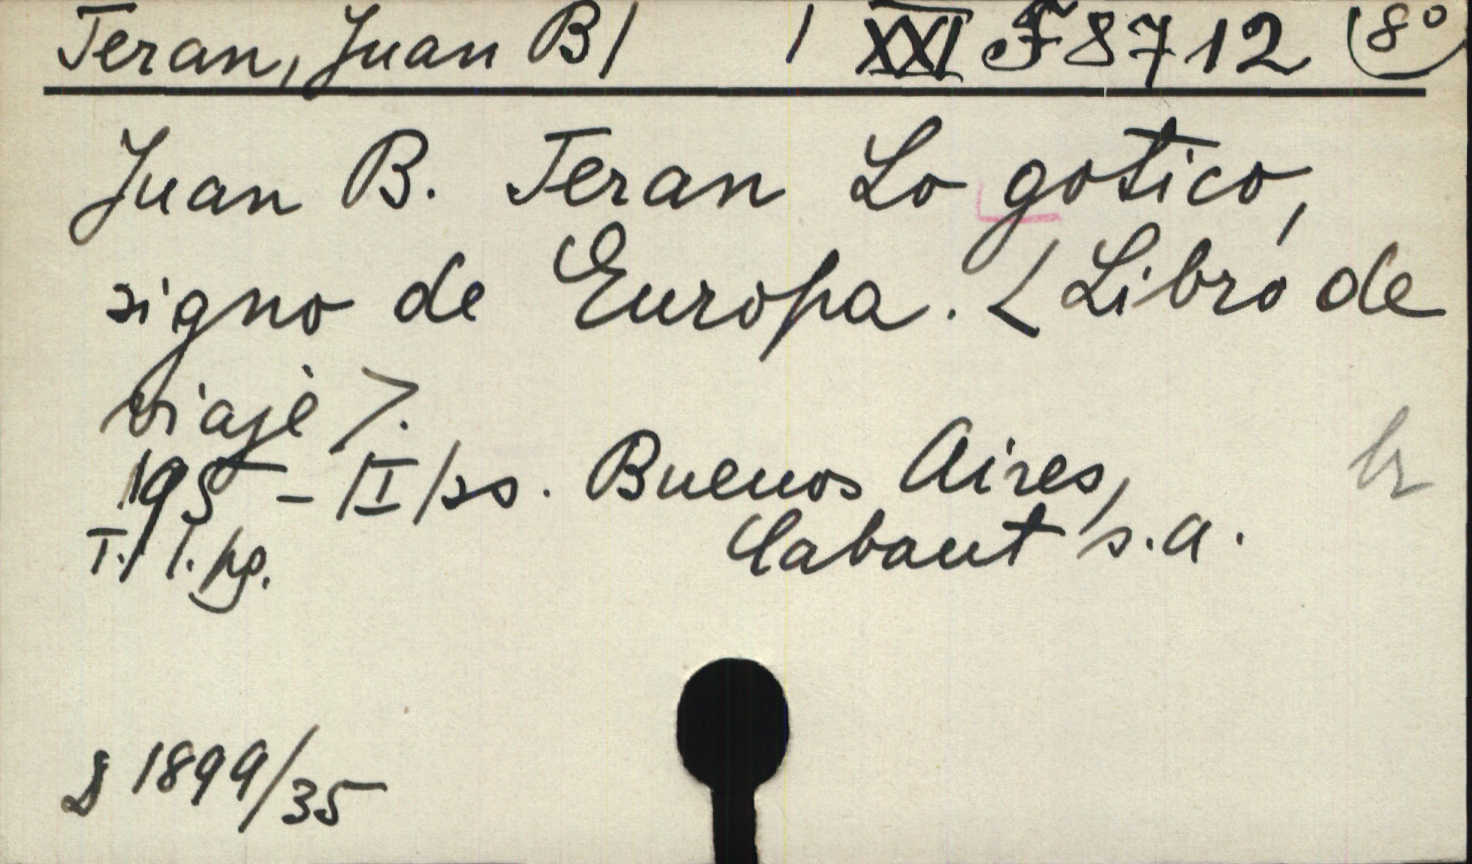 Teran, Juan B/ / XXI F 8712 (8°
Juan B. Teran Lo gotico,
signo de Europa. <Libro de
viaje>.
195 - /II/ss. Buenos Aires,
T./ I. kp. Cabaut s.a.
br
D 1899/35